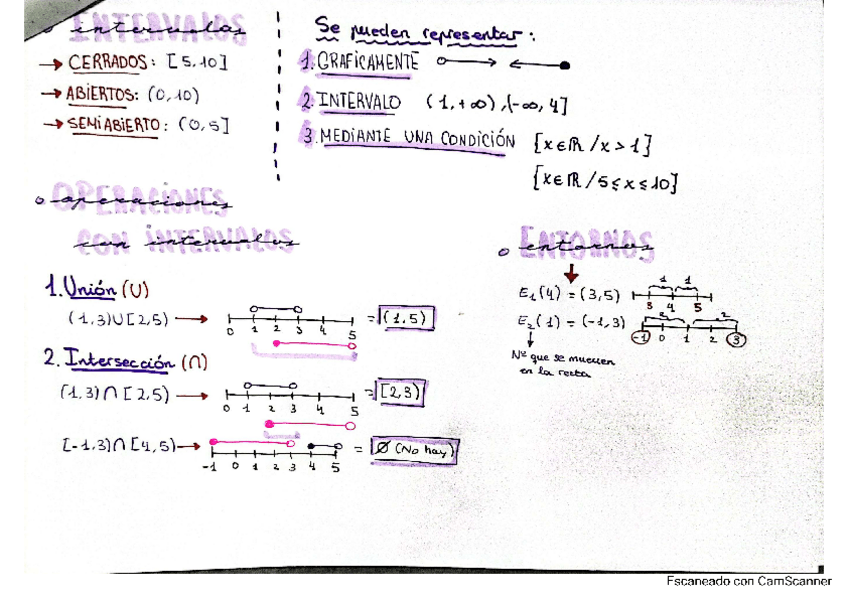 intervalos
→ CERRADOS: [5,10]
→ ABIERTOS: (0,10)
→ SEMIABIERTO: (0,5]
Se pueden representar:
1. GRAFICAMENTE
2. INTERVALO (1,+∞), (-∞, 4]
3. MEDIANTE UNA CONDICIÓN [x∈ℝ/x>1]
[x∈ℝ/5≤x≤10]
operaciones
con intervalos
1. Unión (U)
(1,3)U[2,5) → 0 1 2 3 4 5 = (1,5)
2. Intersección (∩)
(1,3)∩[2,5) → 0 1 2 3 4 5 = [2,3)
[-1,3)∩[4,5) → -1 0 1 2 3 4 5 = Ø (No hay)
entornos
1 1
E₁(4) = (3,5) 3 4 5
2 2
E₂(1) = (-1,3) -1 0 1 2 3
Nº que se mueven
en la recta
Escaneado con CamScanner